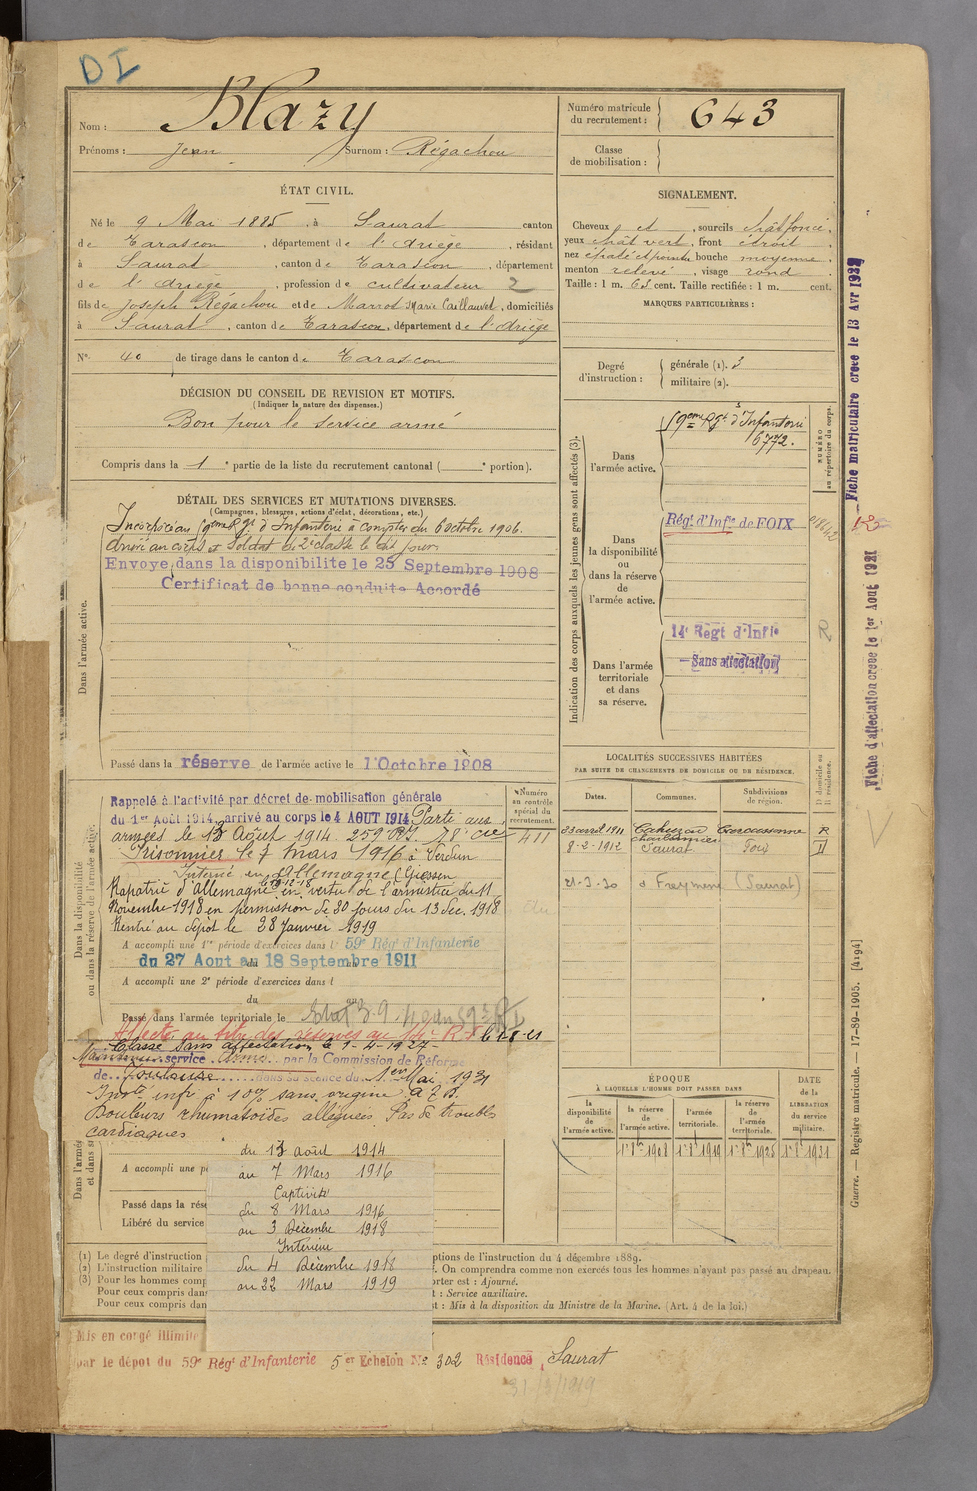 DI
Nom : Blazy
Prénoms : Jean Surnom : Régachou
Numéro matricule du recrutement : 643
Classe de mobilisation :
ÉTAT CIVIL.
Né le 9 Mai 1885, à Saurat canton
de Tarascon, département de l'Ariège, résidant
à Saurat, canton de Tarascon, département
de l'Ariège, profession de cultivateur 2
fils de Joseph Régachou et de Marrot Marie Caillauvet, domiciliés
à Saurat, canton de Tarascon, département de l'Ariège
N° 40 de tirage dans le canton de Tarascon
SIGNALEMENT.
Cheveux et, sourcils chât foncé,
yeux chât vert, front étroit,
nez épaté et pointu bouche moyenne,
menton relevé, visage rond
Taille : 1 m. 63 cent. Taille rectifiée : 1 m. cent.
MARQUES PARTICULIÈRES :
Degré d'instruction : générale (1). 3
militaire (2).
DÉCISION DU CONSEIL DE REVISION ET MOTIFS.
(Indiquer la nature des dispenses.)
Bon pour le service armé
Compris dans la 1e partie de la liste du recrutement cantonal ( e portion).
DÉTAIL DES SERVICES ET MUTATIONS DIVERSES.
(Campagnes, blessures, actions d'éclat, décorations, etc.)
Dans l'armée active.
Incorporé au 59eme Rgt d'Infanterie à compter du 6 octobre 1906.
Arrivé au corps et Soldat de 2e classe le dit jour.
Envoyé dans la disponibilité le 25 Septembre 1908
Certificat de bonne conduite Accordé
Passé dans la réserve de l'armée active le 1 Octobre 1908
Indication des corps auxquels les jeunes gens sont affectés (3).
NUMÉRO au répertoire du corps.
Dans l'armée active.
59eme Rgt d'Infanterie
6772.
Dans la disponibilité ou dans la réserve de l'armée active.
Régt d'Infie de FOIX
Dans l'armée territoriale et dans sa réserve.
14e Regt d'Infie
R
Sans affectation
Dans la disponibilité ou dans la réserve de l'armée active.
Numéro au contrôle spécial du recrutement.
411
Rappelé à l'activité par décret de mobilisation générale
du 1er Août 1914, arrivé au corps le 4 AOUT 1914 Parti aux
armées le 13 Août 1914. 259 RI. 18e Cie
Prisonnier le 7 mars 1916 à Verdun
Interné en Allemagne (Giessen
Rapatrié d'Allemagne en vertu de l'armistice du 11
Novembre 1918 en permission de 30 jours du 13 dec. 1918
Rentré au dépôt le 28 Janvier 1919
A accompli une 1re période d'exercices dans l 59e Régt d'Infanterie
du 27 Aout au 18 Septembre 1911
A accompli une 2e période d'exercices dans l
du
Passé dans l'armée territoriale le
Affecté au titre des réserves au 14e R I
Classé Sans affectation le 1-4-1927
Maintenu service Armé par la Commission de Réforme
de Toulouse dans sa séance du 1er Mai 1931
Inapté infr à 10% sans origine
Douleurs rhumatoïdes alléguées Pas de troubles
cardiaques
A accompli une pé
Passé dans la rése
Libéré du service
du 13 août 1914
au 7 Mars 1916
Captivité
du 8 Mars 1916
au 3 Décembre 1918
Intérieur
du 4 Décembre 1918
au 22 Mars 1919
LOCALITÉS SUCCESSIVES HABITÉES
PAR SUITE DE CHANGEMENTS DE DOMICILE OU DE RÉSIDENCE.
Dates. Communes. Subdivisions de région. D domicile ou R résidence.
23 avril 1911 Cahuzac Carcassonne R
8-2-1912 Saurat Foix D
21-3-30 à Freymene (Saurat)
ÉPOQUE
À LAQUELLE L'HOMME DOIT PASSER DANS
la disponibilité de l'armée active.
la réserve de l'armée active.
l'armée territoriale.
la réserve de l'armée territoriale.
DATE de la LIBÉRATION du service militaire.
1er 8bre 1908 1er 8bre 1919 1er 8bre 1925 1er 8bre 1931
(1) Le degré d'instruction ptions de l'instruction du 4 décembre 1889.
(2) L'instruction militaire f. On comprendra comme non exercés tous les hommes n'ayant pas passé au drapeau.
(3) Pour les hommes comp orter est : Ajourné.
Pour ceux compris dans t : Service auxiliaire.
Pour ceux compris dan st : Mis à la disposition du Ministre de la Marine. (Art. 4 de la loi.)
Mis en congé Illimité
par le dépot du 59e Régt d'Infanterie 5er Echelon No 302 Résidence Saurat
31/3/1919
Fiche matriculaire créée le 13 Avr 1927
Fiche d'affectation créée le 1er Aout 1921
Guerre. — Registre matricule. — 17-89-1905. [4194]